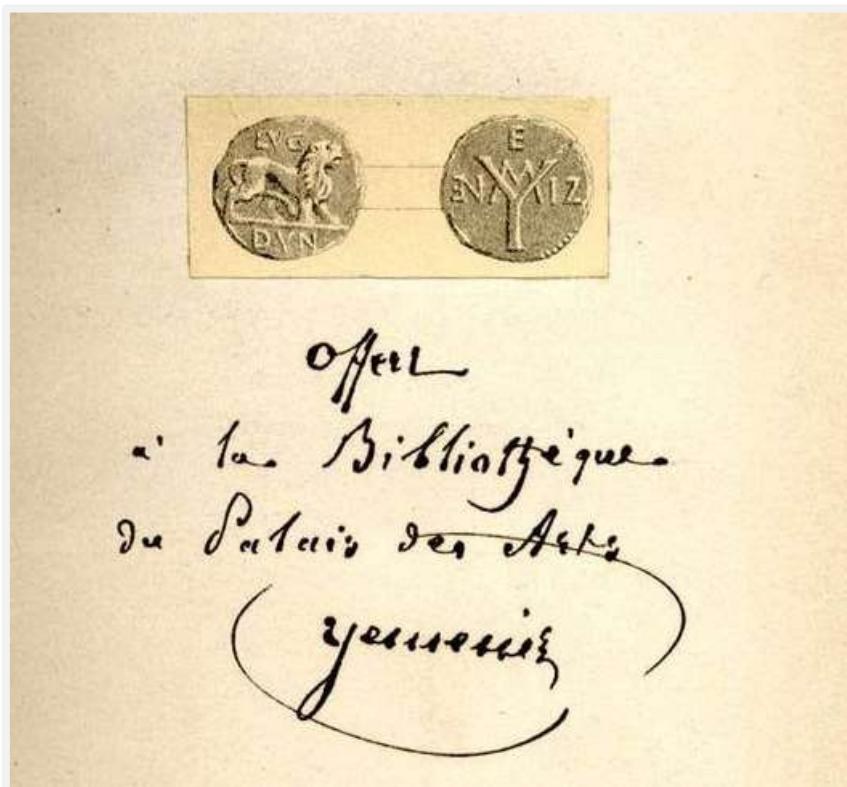 LVG
DVN
E
offert
à la Bibliothèque
du Palais des Arts
Yemeniz